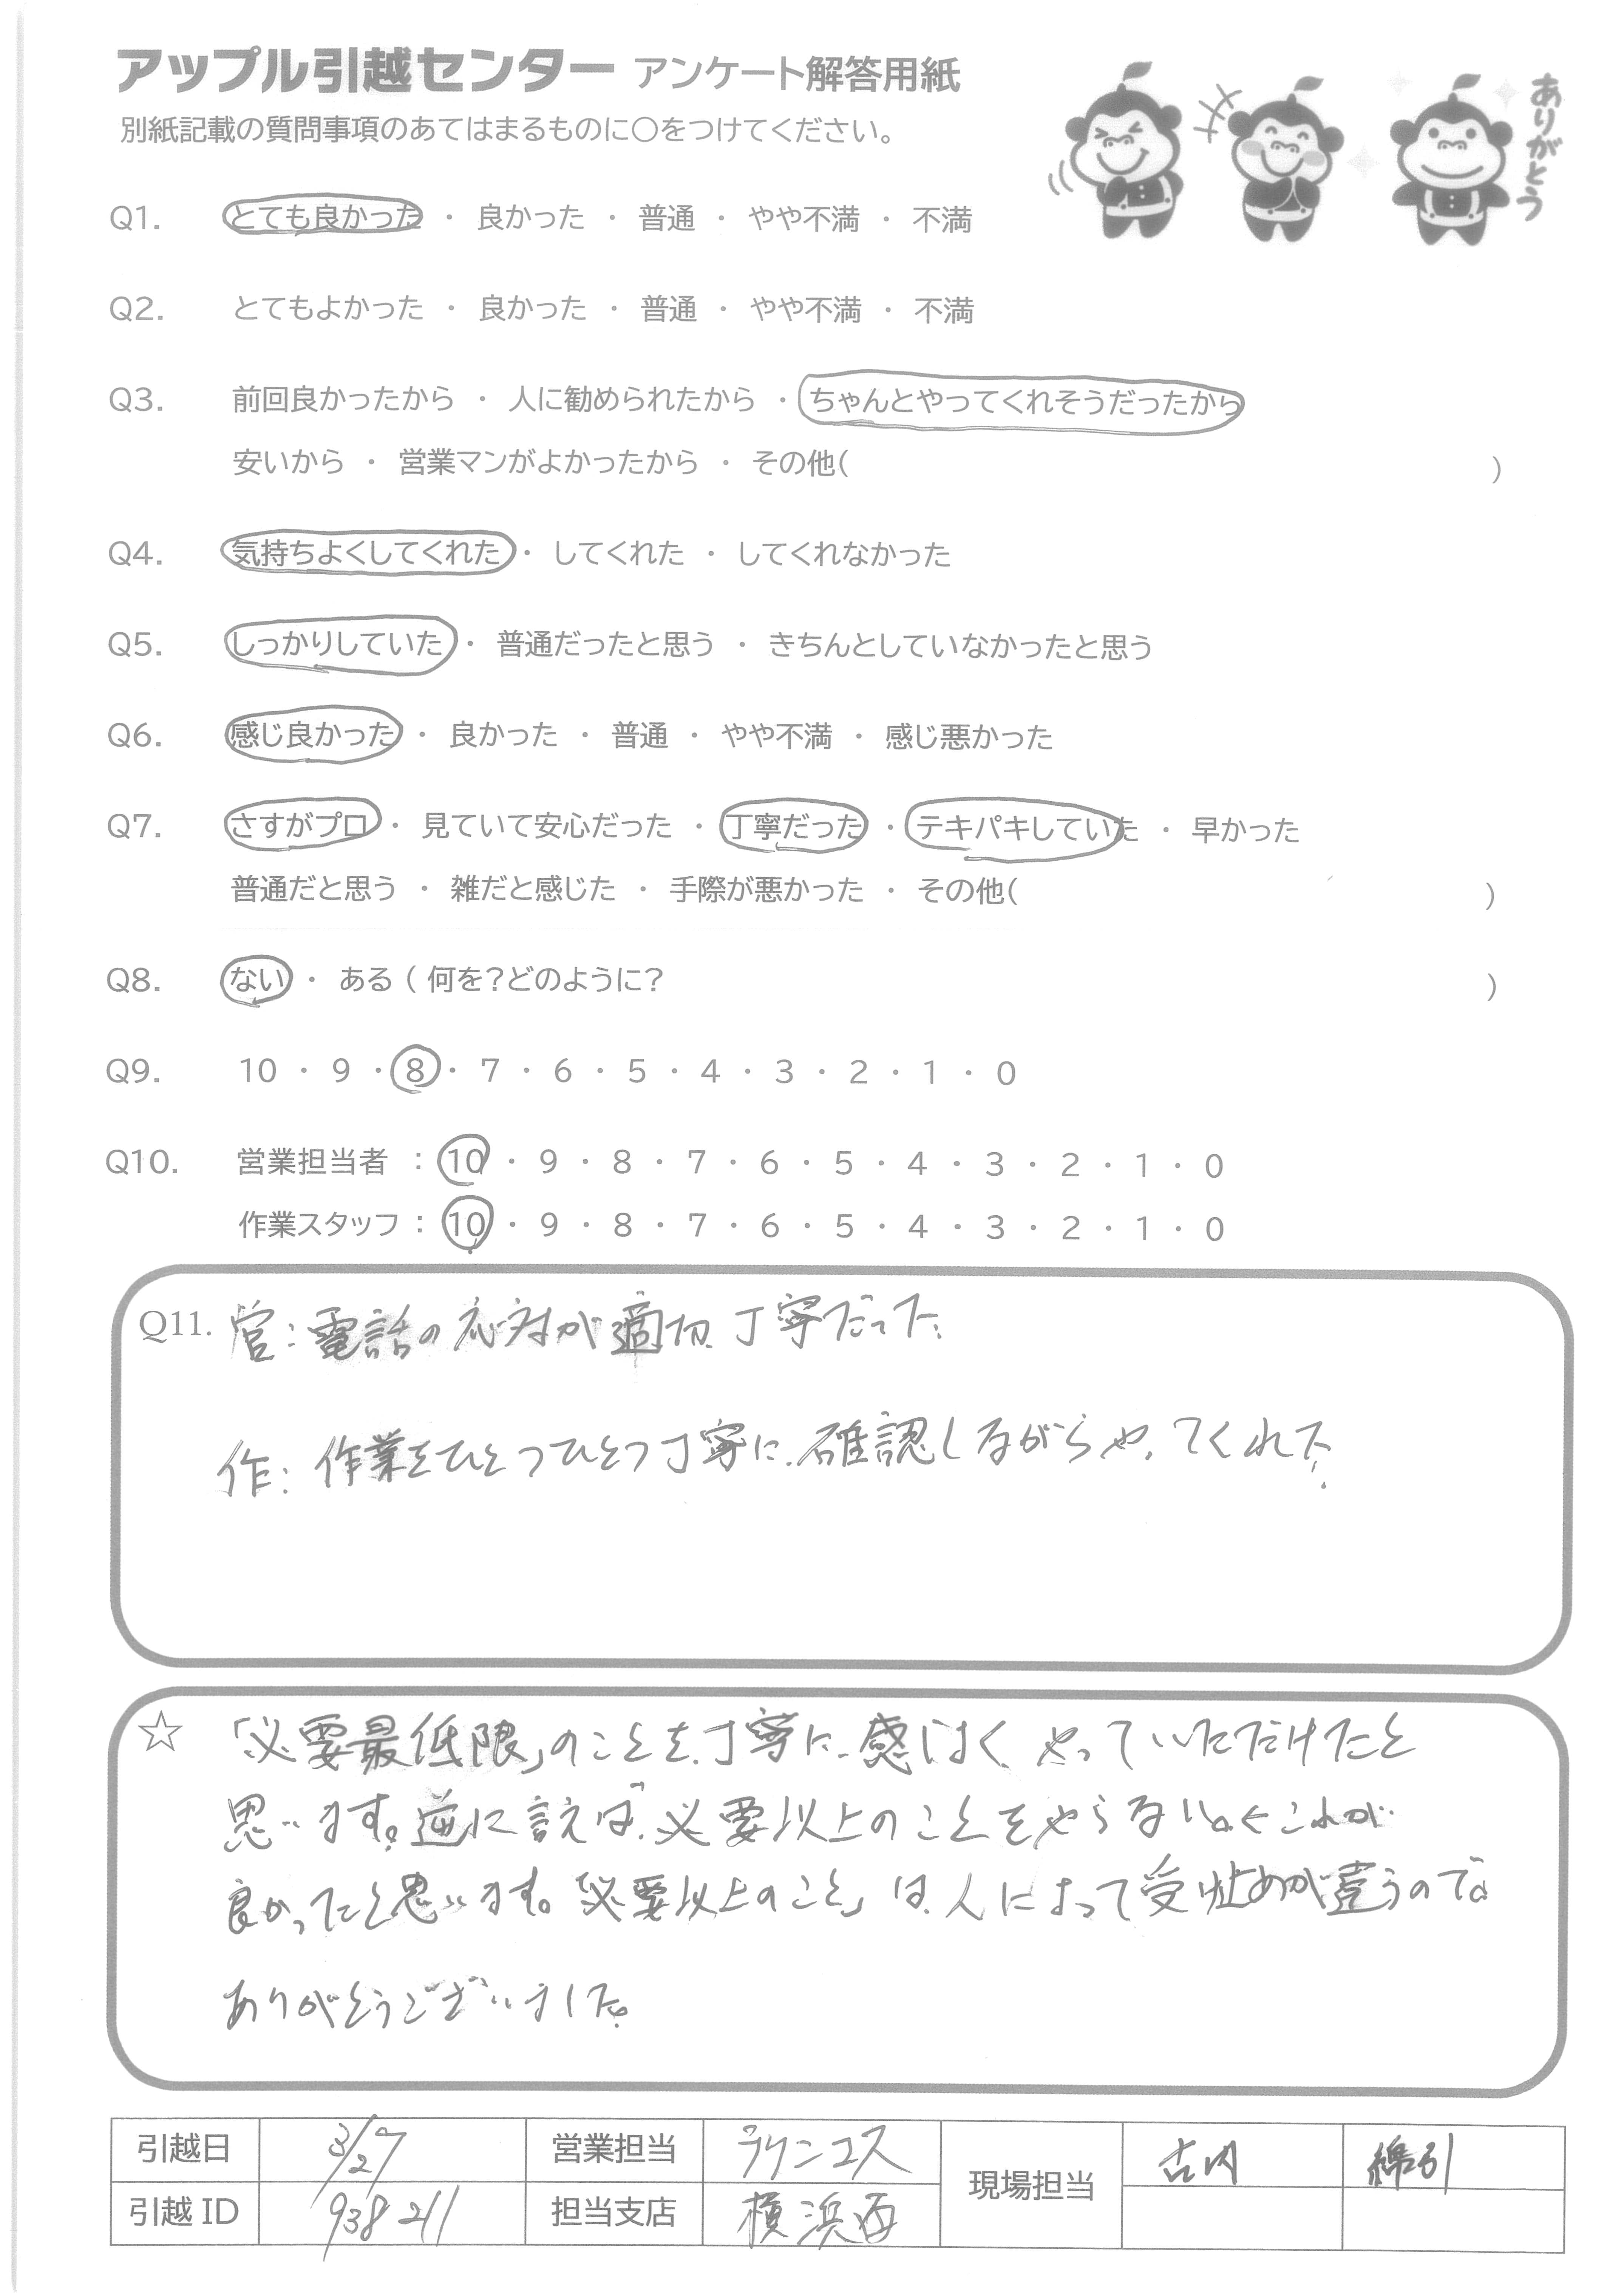 アップル引越センター アンケート解答用紙
ありがとう
別紙記載の質問事項のあてはまるものに○をつけてください。
Q1. とても良かった ・ 良かった ・ 普通 ・ やや不満 ・ 不満
Q2. とてもよかった ・ 良かった ・ 普通 ・ やや不満 ・ 不満
Q3. 前回良かったから ・ 人に勧められたから ・ ちゃんとやってくれそうだったから
安いから ・ 営業マンがよかったから ・ その他( )
Q4. 気持ちよくしてくれた ・ してくれた ・ してくれなかった
Q5. しっかりしていた ・ 普通だったと思う ・ きちんとしていなかったと思う
Q6. 感じ良かった ・ 良かった ・ 普通 ・ やや不満 ・ 感じ悪かった
Q7. さすがプロ ・ 見ていて安心だった ・ 丁寧だった ・ テキパキしていた ・ 早かった
普通だと思う ・ 雑だと感じた ・ 手際が悪かった ・ その他( )
Q8. ない ・ ある ( 何を?どのように? )
Q9. 10 ・ 9 ・ 8 ・ 7 ・ 6 ・ 5 ・ 4 ・ 3 ・ 2 ・ 1 ・ 0
Q10. 営業担当者 : 10 ・ 9 ・ 8 ・ 7 ・ 6 ・ 5 ・ 4 ・ 3 ・ 2 ・ 1 ・ 0
作業スタッフ : 10 ・ 9 ・ 8 ・ 7 ・ 6 ・ 5 ・ 4 ・ 3 ・ 2 ・ 1 ・ 0
Q11. 営:電話の応対が適切、丁寧だった。
作:作業をひとつひとつ丁寧に、確認しながらやってくれた。
☆ 「必要最低限」のことを、丁寧に、感じよく、やっていただけたと
思います。逆に言えば、必要以上のことをやらない。これが
良かったと思います。「必要以上のこと」は、人によって受け止めが違うので。
ありがとうございました。
引越日 3/27 営業担当 現場担当 古内 綿引
引越 ID 938211 担当支店 横浜西